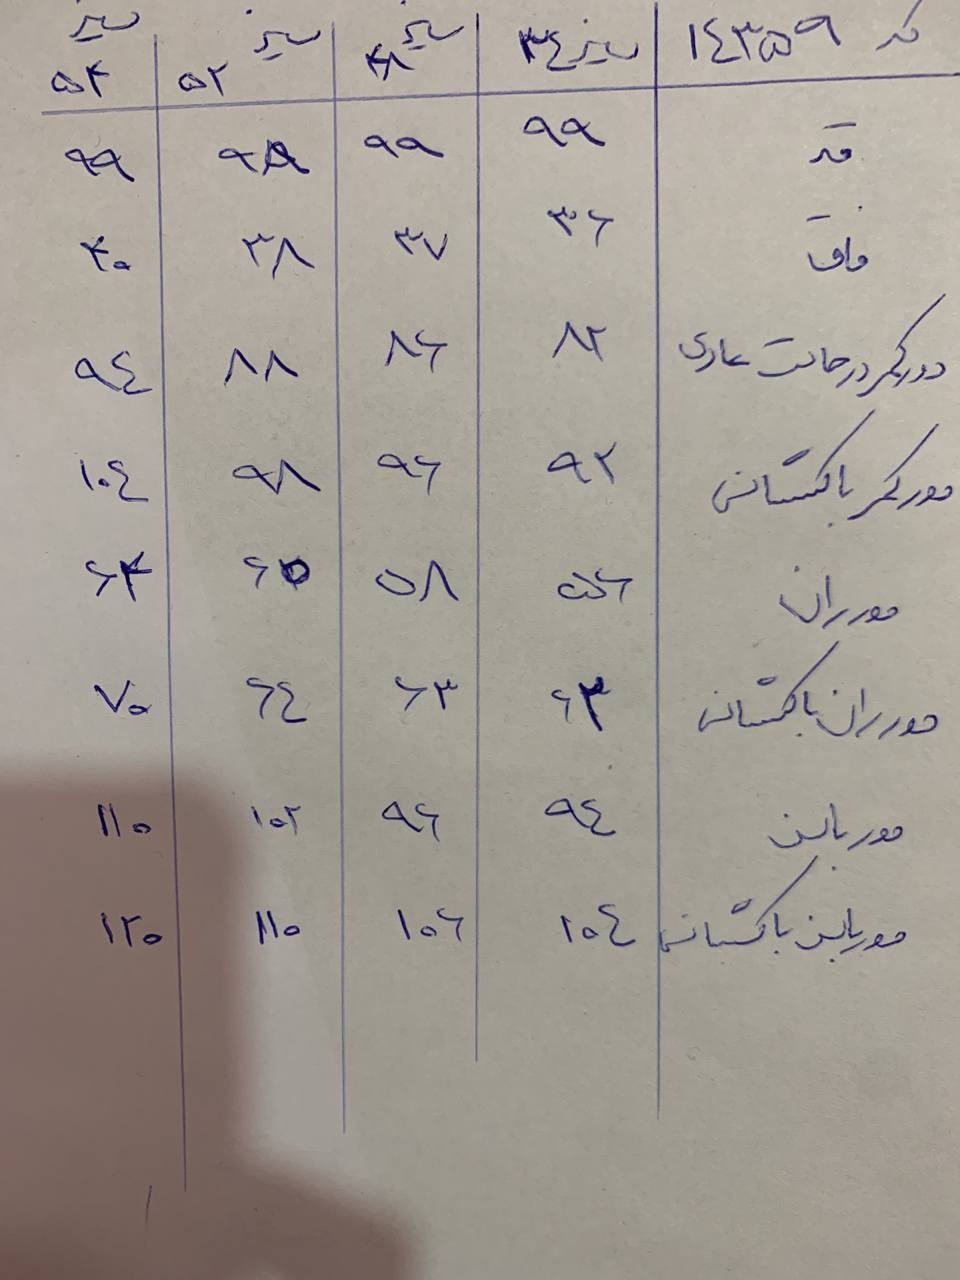 کد ۱۴۳۵۵۹ سایز ۳۴ سایز ۴۸ سایز ۵۲ سایز ۵۴
قد ۹۹ ۹۹ ۹۹ ۹۹
فاق ۳۶ ۳۷ ۳۸ ۴۰
دورکمر در حالت عادی ۸۲ ۸۶ ۸۸ ۹۴
دورکمر باکشسانی ۹۲ ۹۶ ۹۸ ۱۰۴
دور ران ۵۶ ۵۸ ۶۰ ۶۴
دور ران باکشسانی ۶۳ ۶۳ ۶۴ ۷۰
دور باسن ۹۴ ۹۶ ۱۰۲ ۱۱۰
دور باسن باکشسانی ۱۰۴ ۱۰۶ ۱۱۰ ۱۲۰